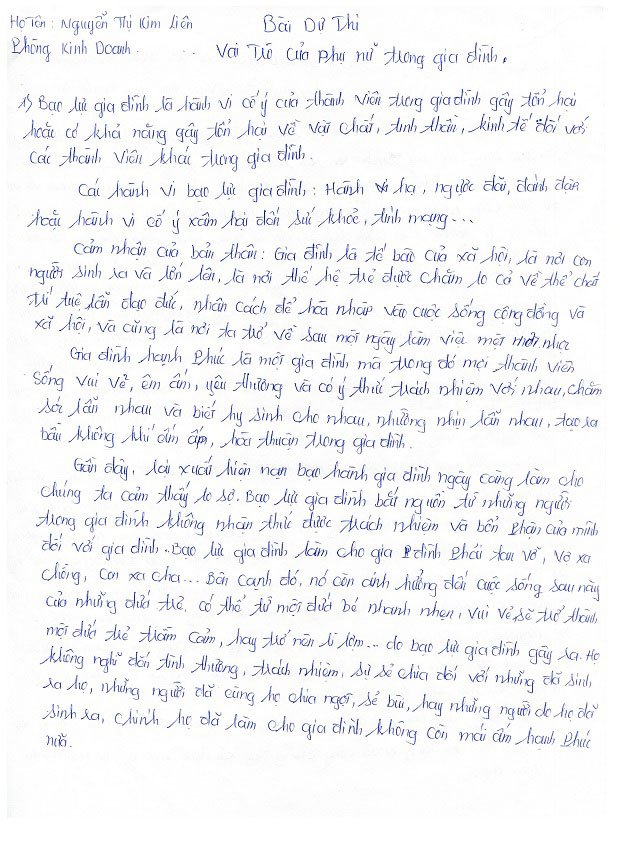 Họ Tên : Nguyễn Thị Kim Liên
Bài Dự Thi
Phòng Kinh Doanh.
Vai Trò của phụ nữ trong gia đình.
1) Bạo lực gia đình là hành vi cố ý của thành viên trong gia đình gây tổn hại
hoặc có khả năng gây tổn hại về vật chất, tinh thần, kinh tế đối với
các thành viên khác trong gia đình.
Các hành vi bạo lực gia đình : Hành hạ, ngược đãi, đánh đập
hoặc hành vi cố ý xâm hại đến sức khỏe, tính mạng...
Cảm nhận của bản thân : Gia đình là tế bào của xã hội, là nơi con
người sinh ra và lớn lên, là nơi thế hệ trẻ được chăm lo cả về thể chất
trí tuệ lẫn đạo đức, nhân cách để hòa nhập vào cuộc sống cộng đồng và
xã hội, và cũng là nơi ta trở về sau một ngày làm việc mệt nhọc
Gia đình hạnh phúc là một gia đình mà trong đó mọi thành viên
sống vui vẻ, êm ấm, yêu thương và có ý thức trách nhiệm với nhau, chăm
sóc lẫn nhau và biết hy sinh cho nhau, nhường nhịn lẫn nhau, tạo ra
bầu không khí ấm áp, hòa thuận trong gia đình.
Gần đây, lại xuất hiện nạn bạo hành gia đình ngày càng làm cho
chúng ta cảm thấy lo sợ. Bạo lực gia đình bắt nguồn từ những người
trong gia đình không nhận thức được trách nhiệm và bổn phận của mình
đối với gia đình. Bạo lực gia đình làm cho gia đình phải tan vỡ, vợ xa
chồng, con xa cha... Bên cạnh đó, nó còn ảnh hưởng đến cuộc sống sau này
của những đứa trẻ. có thể từ một đứa bé nhanh nhẹn, vui vẻ sẽ trở thành
một đứa trẻ trầm cảm, hay trở nên lì lợm... do bạo lực gia đình gây ra. Họ
không nghĩ đến tình thương, trách nhiệm, sự sẻ chia đối với những đã sinh
ra họ, những người đã cùng họ chia ngọt, sẻ bùi, hay những người do họ đã
sinh ra, chính họ đã làm cho gia đình không còn mái ấm hạnh phúc
nữa.